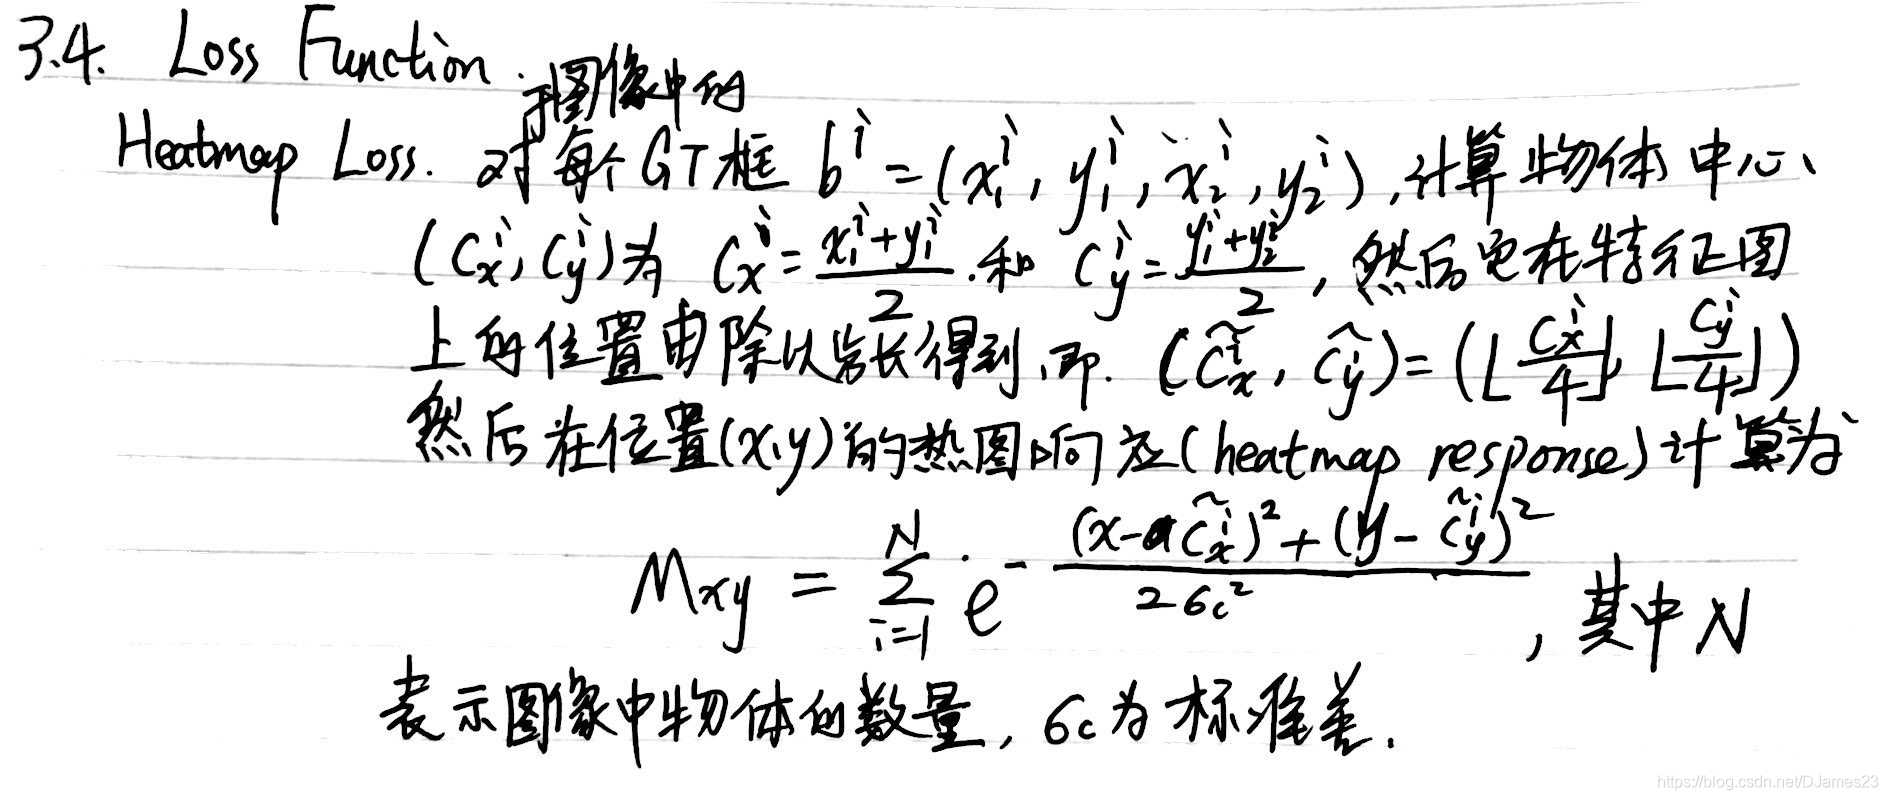 3.4. Loss Function
于图像中的
Heatmap Loss. 对每个GT框 b^i = (x_1^i, y_1^i, x_2^i, y_2^i), 计算物体中心
(c_x^i, c_y^i)为 c_x^i = \frac{x_1^i + y_1^i}{2}. 和 c_y^i = \frac{y_1^i + y_2^i}{2}, 然后它在特征图
上的位置由除以步长得到, 即. (\tilde{c}_x^i, \tilde{c}_y^i) = (⌊\frac{c_x^i}{4}⌋, ⌊\frac{c_y^i}{4}⌋)
然后在位置(x,y)的热图响应(heatmap response)计算为
M_{xy} = \sum_{i=1}^{N} e^{-\frac{(x-\tilde{c}_x^i)^2 + (y-\tilde{c}_y^i)^2}{2σ_c^2}}, 其中N
表示图像中物体的数量, σ_c为标准差.
https://blog.csdn.net/DJames23